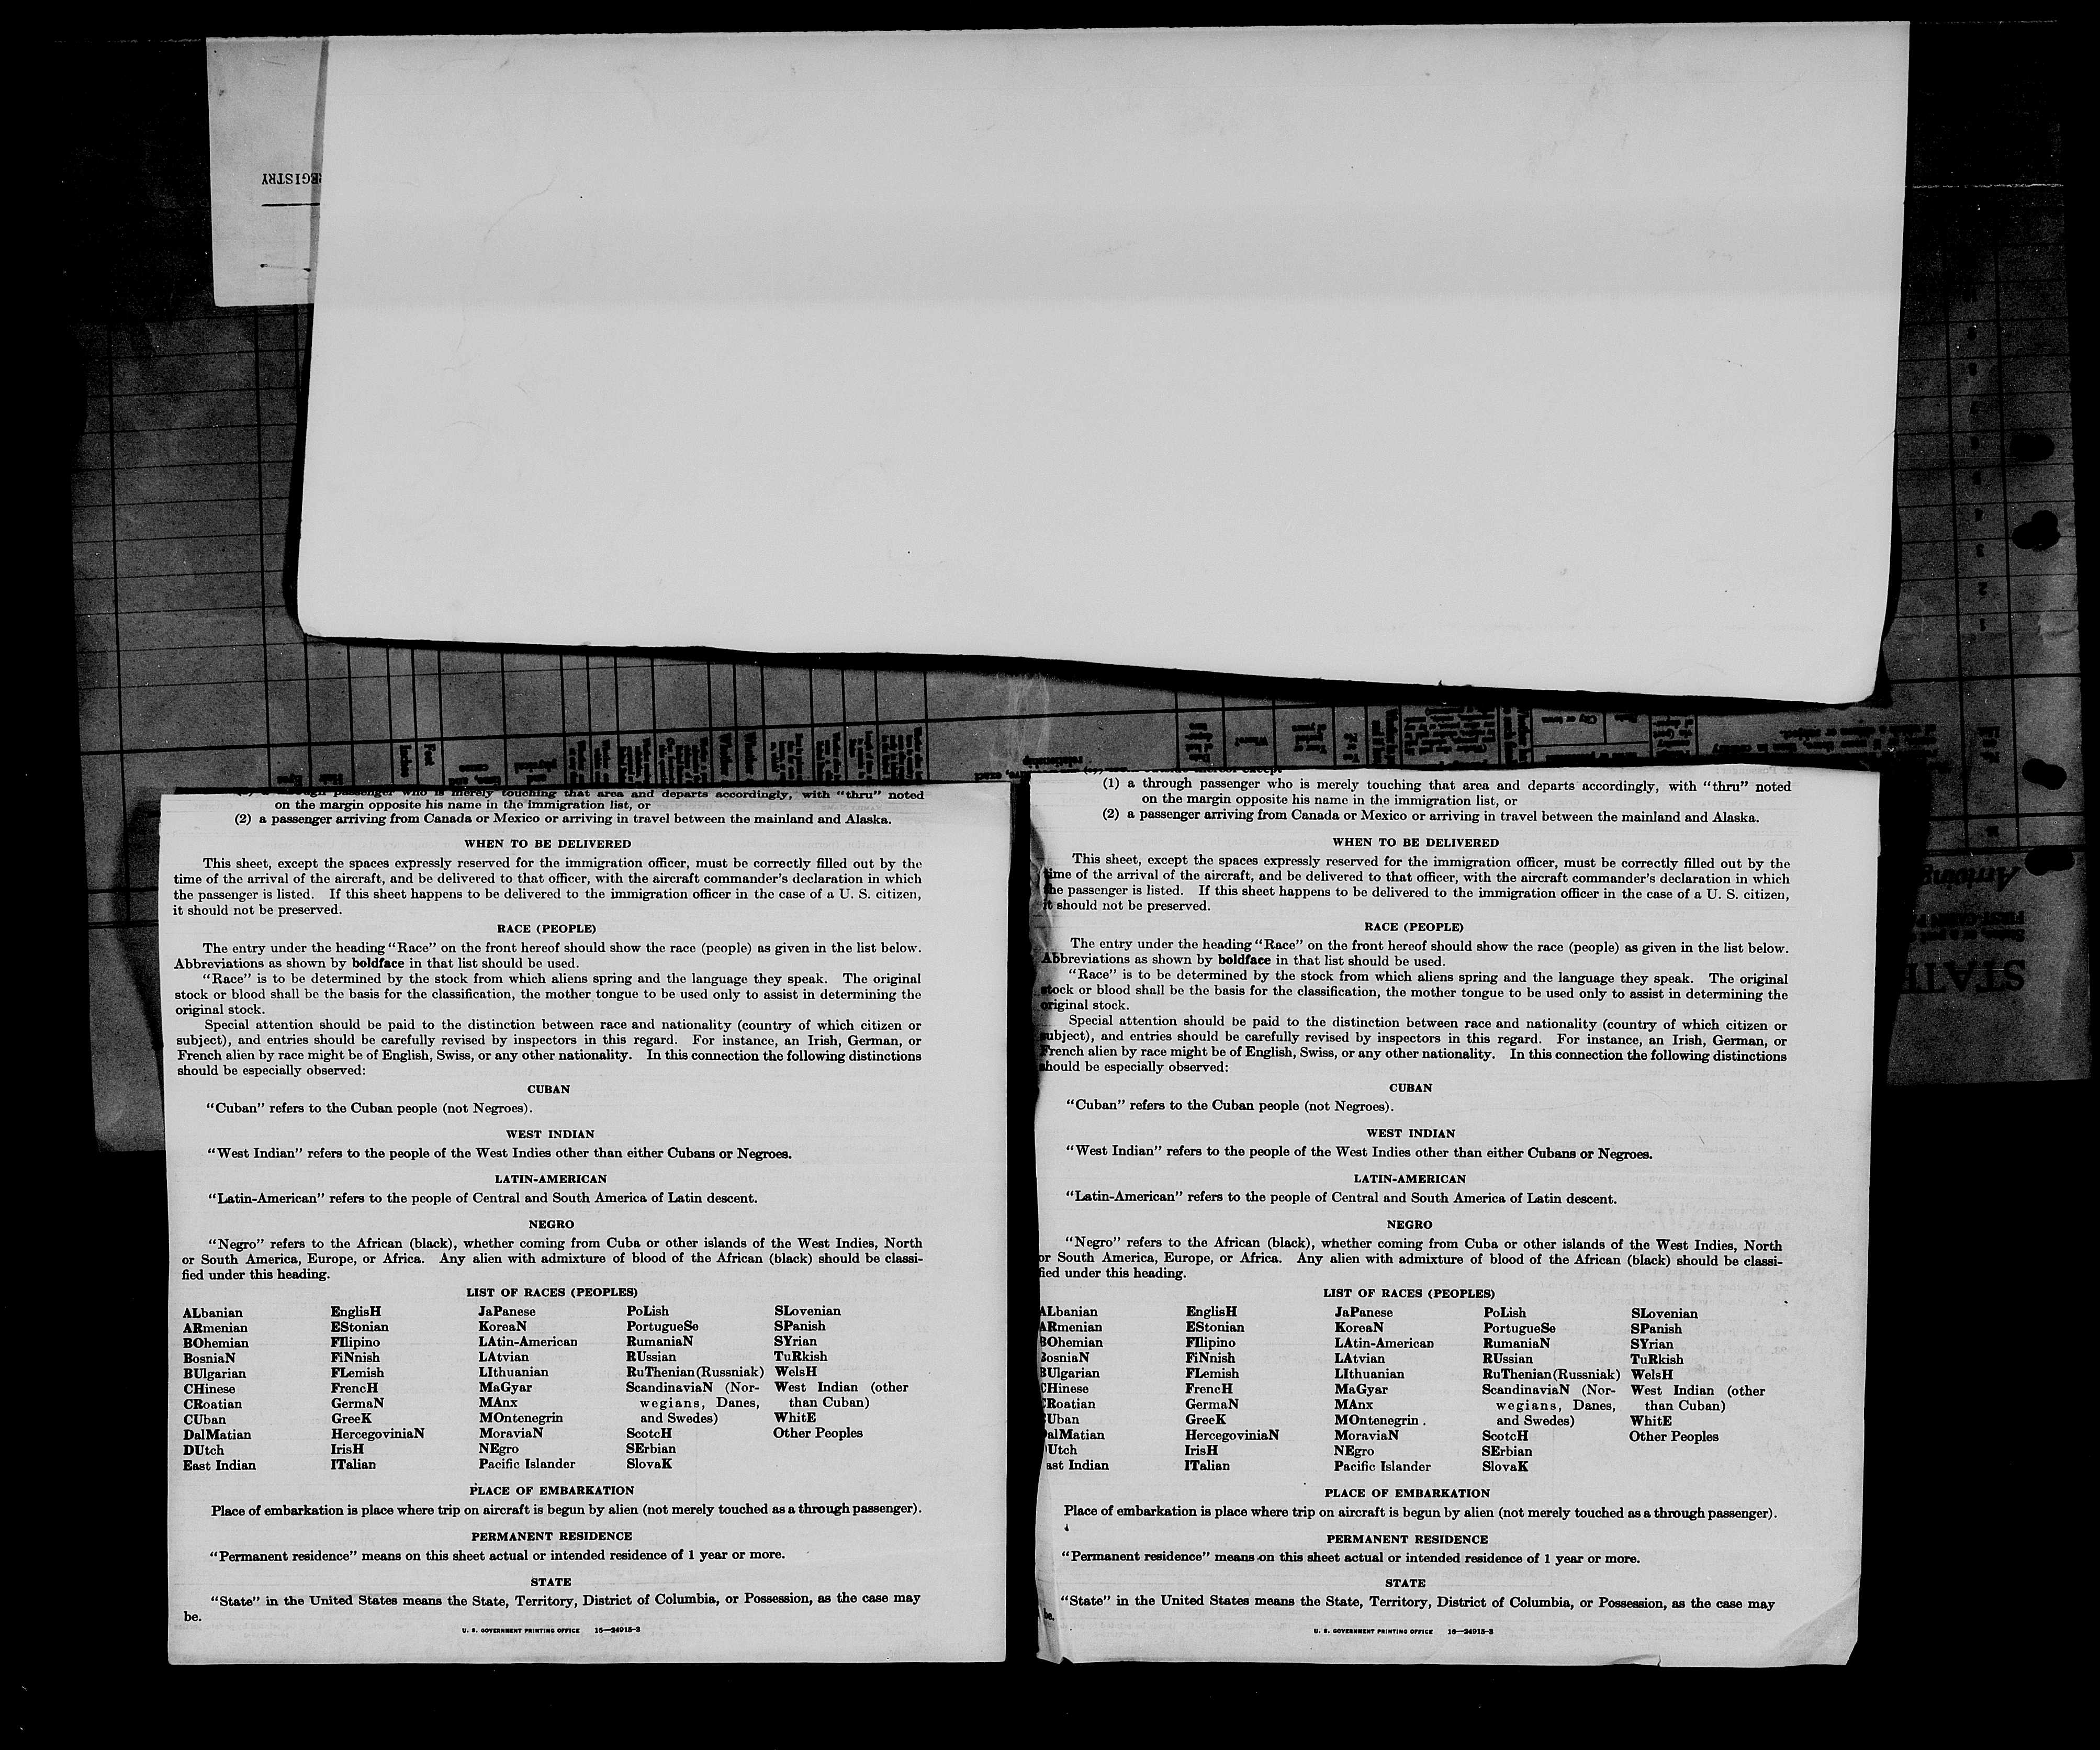 REGISTRY
(1) a through passenger who is merely touching that area and departs accordingly, with “thru” noted
on the margin opposite his name in the immigration list, or
(2) a passenger arriving from Canada or Mexico or arriving in travel between the mainland and Alaska.
WHEN TO BE DELIVERED
This sheet, except the spaces expressly reserved for the immigration officer, must be correctly filled out by the
time of the arrival of the aircraft, and be delivered to that officer, with the aircraft commander’s declaration in which
the passenger is listed. If this sheet happens to be delivered to the immigration officer in the case of a U. S. citizen,
it should not be preserved.
RACE (PEOPLE)
The entry under the heading “Race” on the front hereof should show the race (people) as given in the list below.
Abbreviations as shown by boldface in that list should be used.
“Race” is to be determined by the stock from which aliens spring and the language they speak. The original
stock or blood shall be the basis for the classification, the mother tongue to be used only to assist in determining the
original stock.
Special attention should be paid to the distinction between race and nationality (country of which citizen or
subject), and entries should be carefully revised by inspectors in this regard. For instance, an Irish, German, or
French alien by race might be of English, Swiss, or any other nationality. In this connection the following distinctions
should be especially observed:
CUBAN
“Cuban” refers to the Cuban people (not Negroes).
WEST INDIAN
“West Indian” refers to the people of the West Indies other than either Cubans or Negroes.
LATIN-AMERICAN
“Latin-American” refers to the people of Central and South America of Latin descent.
NEGRO
“Negro” refers to the African (black), whether coming from Cuba or other islands of the West Indies, North
or South America, Europe, or Africa. Any alien with admixture of blood of the African (black) should be classi-
fied under this heading.
LIST OF RACES (PEOPLES)
ALbanian EnglisH JaPanese PoLish SLovenian
ARmenian EStonian KoreaN PortugueSe SPanish
BOhemian FIlipino LAtin-American RumaniaN SYrian
BosniaN FiNnish LAtvian RUssian TuRkish
BUlgarian FLemish LIthuanian RuThenian (Russniak) WelsH
CHinese FrencH MaGyar ScandinaviaN (Nor- West Indian (other
CRoatian GermaN MAnx wegians, Danes, than Cuban)
CUban GreeK MOntenegrin and Swedes) WhitE
DalMatian HercegoviniaN MoraviaN ScotcH Other Peoples
DUtch IrisH NEgro SErbian
East Indian ITalian Pacific Islander SlovaK
PLACE OF EMBARKATION
Place of embarkation is place where trip on aircraft is begun by alien (not merely touched as a through passenger).
PERMANENT RESIDENCE
“Permanent residence” means on this sheet actual or intended residence of 1 year or more.
STATE
“State” in the United States means the State, Territory, District of Columbia, or Possession, as the case may
be.
U. S. GOVERNMENT PRINTING OFFICE 16—24915-3
(1) a through passenger who is merely touching that area and departs accordingly, with “thru” noted
on the margin opposite his name in the immigration list, or
(2) a passenger arriving from Canada or Mexico or arriving in travel between the mainland and Alaska.
WHEN TO BE DELIVERED
This sheet, except the spaces expressly reserved for the immigration officer, must be correctly filled out by the
time of the arrival of the aircraft, and be delivered to that officer, with the aircraft commander’s declaration in which
the passenger is listed. If this sheet happens to be delivered to the immigration officer in the case of a U. S. citizen,
it should not be preserved.
RACE (PEOPLE)
The entry under the heading “Race” on the front hereof should show the race (people) as given in the list below.
Abbreviations as shown by boldface in that list should be used.
“Race” is to be determined by the stock from which aliens spring and the language they speak. The original
stock or blood shall be the basis for the classification, the mother tongue to be used only to assist in determining the
original stock.
Special attention should be paid to the distinction between race and nationality (country of which citizen or
subject), and entries should be carefully revised by inspectors in this regard. For instance, an Irish, German, or
French alien by race might be of English, Swiss, or any other nationality. In this connection the following distinctions
should be especially observed:
CUBAN
“Cuban” refers to the Cuban people (not Negroes).
WEST INDIAN
“West Indian” refers to the people of the West Indies other than either Cubans or Negroes.
LATIN-AMERICAN
“Latin-American” refers to the people of Central and South America of Latin descent.
NEGRO
“Negro” refers to the African (black), whether coming from Cuba or other islands of the West Indies, North
or South America, Europe, or Africa. Any alien with admixture of blood of the African (black) should be classi-
fied under this heading.
LIST OF RACES (PEOPLES)
ALbanian EnglisH JaPanese PoLish SLovenian
ARmenian EStonian KoreaN PortugueSe SPanish
BOhemian FIlipino LAtin-American RumaniaN SYrian
BosniaN FiNnish LAtvian RUssian TuRkish
BUlgarian FLemish LIthuanian RuThenian (Russniak) WelsH
CHinese FrencH MaGyar ScandinaviaN (Nor- West Indian (other
CRoatian GermaN MAnx wegians, Danes, than Cuban)
CUban GreeK MOntenegrin and Swedes) WhitE
alMatian HercegoviniaN MoraviaN ScotcH Other Peoples
Utch IrisH NEgro SErbian
ast Indian ITalian Pacific Islander SlovaK
PLACE OF EMBARKATION
Place of embarkation is place where trip on aircraft is begun by alien (not merely touched as a through passenger).
PERMANENT RESIDENCE
“Permanent residence” means on this sheet actual or intended residence of 1 year or more.
STATE
“State” in the United States means the State, Territory, District of Columbia, or Possession, as the case may
be.
U. S. GOVERNMENT PRINTING OFFICE 16—24915-3